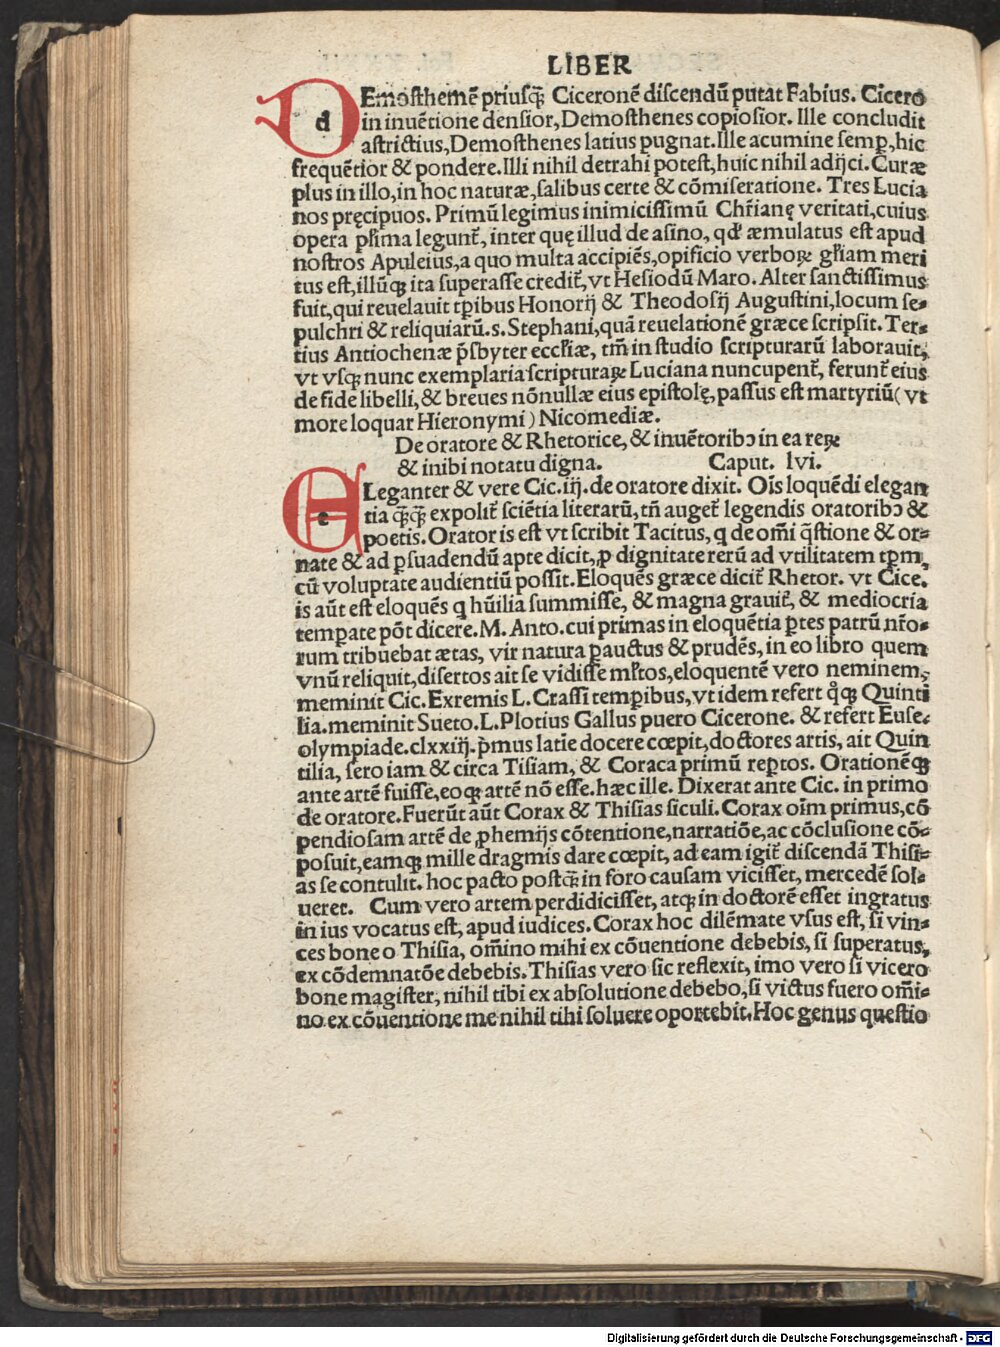 LIBER
DEmosthemē priusq̄ Ciceronē discendū putat Fabius. Cicero
d in inuētione densior, Demosthenes copiosior. Ille concludit
astrictius, Demosthenes latius pugnat. Ille acumine semꝑ, hic
frequētior & pondere. Illi nihil detrahi potest, huic nihil adijci. Curæ
plus in illo, in hoc naturæ, salibus certe & cōmiseratione. Tres Lucia
nos pręcipuos. Primū legimus inimicissimū Chr̄ianę veritati, cuius
opera pl̄ima legunt̄, inter quę illud de asino, qd' æmulatus est apud
nostros Apuleius, a quo multa accipiēs, opificio verboꝝ gl̄iam meri
tus est, illūqꝫ ita superasse credit̄, vt Hesiodū Maro. Alter sanctissimus
fuit, qui reuelauit tꝑibus Honorij & Theodosij Augustini, locum se⸗
pulchri & reliquiarū. s. Stephani, quā reuelationē græce scripsit. Ter⸗
tius Antiochenæ p̄sbyter eccl̄iæ, tm̄ in studio scripturarū laborauit,
vt vsqꝫ nunc exemplaria scripturaꝝ Luciana nuncupent̄, ferunt̄ eius
de fide libelli, & breues nōnullæ eius epistolę, passus est martyriū ( vt
more loquar Hieronymi ) Nicomediæ.
De oratore & Rhetorice, & inuētoribꝰ in ea reꝝ
& inibi notatu digna. Caput. lvi.
ELeganter & vere Cic. iij. de oratore dixit. Oīs loquēdi elegan
e tia q̄q̄ expolit̄ sciētia literarū, tn̄ auget̄ legendis oratoribꝰ &
poetis. Orator is est vt scribit Tacitus, q de om̄i q̄stione & or⸗
nate & ad ꝑsuadendū apte dicit, ꝓ dignitate rerū ad vtilitatem tꝑm,
cū voluptate audientiū possit. Eloquēs græce dicit̄ Rhetor. vt Cice.
is aūt est eloquēs q hūilia summisse, & magna grauit̄, & mediocria
temꝑate pōt dicere. M. Anto. cui primas in eloquētia ꝑtes patrū nr̄o⸗
rum tribuebat ætas, vir natura ꝑauctus & prudēs, in eo libro quem
vnū reliquit, disertos ait se vidisse ml̄tos, eloquentē vero neminem,
meminit Cic. Exremis L. Crassi temꝑibus, vt idem refert q̊qꝫ Quinti
lia. meminit Sueto. L. Plotius Gallus puero Cicerone. & refert Euse.
olympiade. clxxiij. p̄mus latīe docere cœpit, doctores artis, ait Quin
tilia, sero iam & circa Tisiam, & Coraca primū reꝑtos. Orationēqꝫ
ante artē fuisse, eoqꝫ artē nō esse. hæc ille. Dixerat ante Cic. in primo
de oratore. Fuerūt aūt Corax & Thisias siculi. Corax oīm primus, cō
pendiosam artē de ꝓhemijs cōtentione, narratiōe, ac cōclusione cō⸗
posuit, eamqꝫ mille dragmis dare cœpit, ad eam igit̄ discendā Thisi⸗
as se contulit. hoc pacto postq̄ in foro causam vicisset, mercedē sol⸗
ueret. Cum vero artem perdidicisset, atqꝫ in doctorē esset ingratus
in ius vocatus est, apud iudices. Corax hoc dilēmate vsus est, si vin⸗
ces bone o Thisia, om̄ino mihi ex cōuentione debebis, si superatus,
ex cōdemnatōe debebis. Thisias vero sic reflexit, imo vero si vicero
bone magister, nihil tibi ex absolutione debebo, si victus fuero om̄i⸗
no ex cōuentione me nihil tibi soluere oportebit. Hoc genus questio
Digitalisierung gefördert durch die Deutsche Forschungsgemeinschaft - DFG